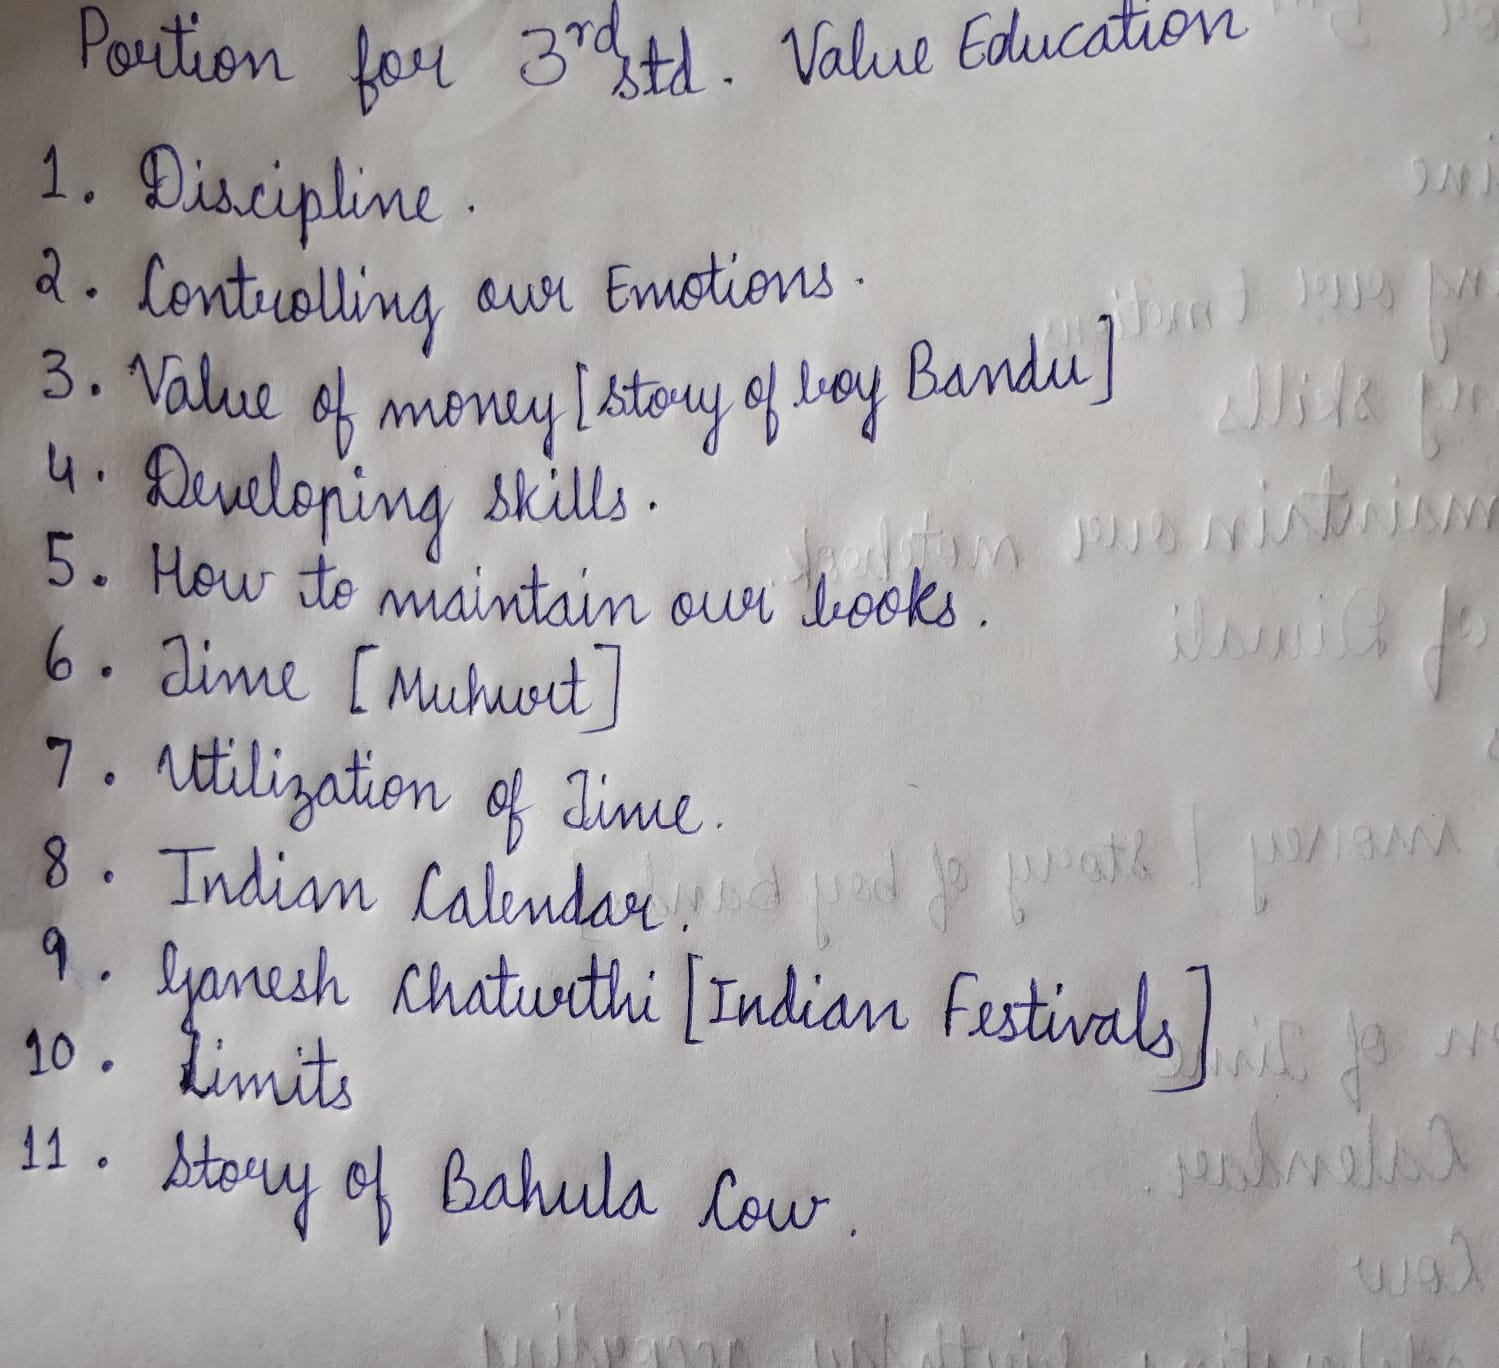 Portion for 3rd std. Value Education
1. Discipline.
2. Controlling our Emotions.
3. Value of money [story of boy Bandu]
4. Developing skills.
5. How to maintain our books.
6. Time [Muhurt]
7. Utilization of Time.
8. Indian Calendar.
9. Ganesh Chaturthi [Indian Festivals]
10. Limits
11. Story of Bahula Cow.